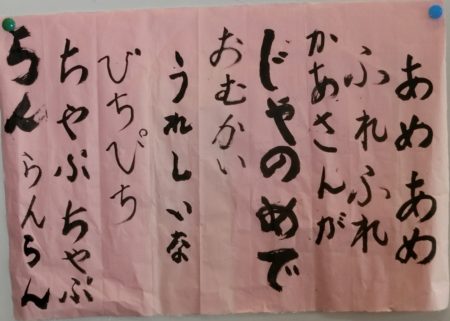 あめあめ
ふれふれ
かあさんが
じゃのめで
おむかい
うれしいな
ぴちぴち
ちゃぷちゃぷ
らんらんらん